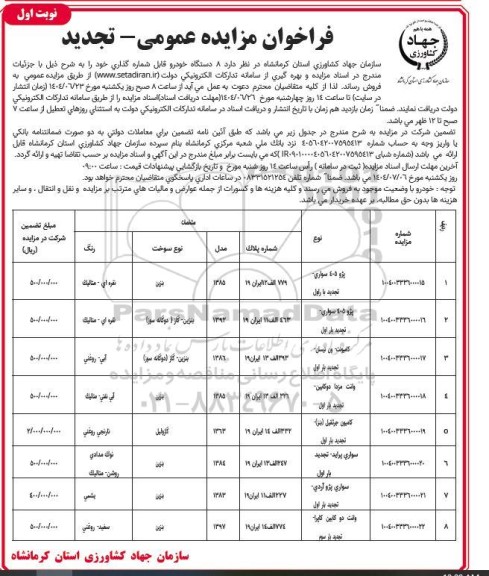 نوبت اول
فراخوان مزایده عمومی– تجدید
جهاد کشاورزی
سازمان جهاد کشاورزی استان کرمانشاه در نظر دارد ۸ دستگاه خودرو قابل شماره گذاری خود را به شرح ذیل با جزئیات
مندرج در اسناد مزایده و بهره گیری از سامانه تدارکات الکترونیکی دولت (www.setadiran.ir) از طریق مزایده عمومی به
فروش رساند. لذا از کلیه متقاضیان محترم دعوت به عمل می آید از ساعت ۸ صبح روز یکشنبه مورخ ۱۴۰۴/۰۶/۲۳ (زمان انتشار
در سایت) تا ساعت ۱۴ روز چهارشنبه مورخ ۱۴۰۴/۰۶/۲۶ (مهلت دریافت اسناد)اسناد مزایده را از طریق سامانه تدارکات الکترونیکی
دولت دریافت نمایند. ضمناً زمان بازدید هم زمان با تاریخ انتشار و دریافت اسناد در سامانه تدارکات الکترونیکی دولت به استثنای روزهای تعطیل از ساعت ۷
صبح تا ۱۲ ظهر می باشد.
تضمین شرکت در مزایده به شرح مندرج در جدول زیر می باشد که طبق آئین نامه تضمین برای معاملات دولتی به دو صورت ضمانتنامه بانکی
یا واریز وجه به حساب شماره ۴۰۵۶۰۴۲۰۰۷۵۹۵۴۱۳ نزد بانک ملی شعبه مرکزی کرمانشاه بنام سپرده سازمان جهاد کشاورزی استان کرمانشاه قابل
ارائه می باشد (شماره شبای که می بایست برابر مبلغ مندرج در این آگهی و اسناد مزایده بر حسب تقاضا تهیه و ارائه گردد.
آخرین مهلت ارسال اسناد مزایده( ثبت در سامانه ) رأس ساعت ۱۴ روز شنبه مورخ و تاریخ بازگشایی پیشنهادات قیمت : ساعت ۰۹:۰۰
روز یکشنبه مورخ ۱۴۰۴/۰۷/۰۶ می باشد. ضمناً شماره تلفن ۰۸۳۳۱۵۲۱۲۵۴ در ساعات اداری پاسخگوی متقاضیان محترم خواهد بود.
توجه : خودرو با وضعیت موجود به فروش می رسند و کلیه هزینه ها و کسورات از جمله عوارض و مالیات های مترتب بر مزایده و نقل و انتقال ، و سایر
هزینه ها بدون حق مطالبه، بر عهده خریدار می باشد.
ردیف شماره مزایده نوع مشخصات شماره پلاک مدل نوع سوخت رنگ مبلغ تضمین شرکت در مزایده (ریال)
۱ ۱۰۰۴۰۰۳۳۳۶۰۰۰۰۱۵ پژو ۴۰۵ سواری- تجدید بار اول ۷۷۹ الف۱۲ایران ۱۹ ۱۳۸۵ بنزین نقره ای - متالیک ۵۰۰/۰۰۰/۰۰۰
۲ ۱۰۰۴۰۰۳۳۳۶۰۰۰۰۱۶ پژو ۴۰۵ سواری- تجدید بار اول ۴۶۳ الف۱۱ ایران ۱۹ ۱۳۹۲ بنزین- گاز ( دوگانه سوز) نقره ای - متالیک ۵۰۰/۰۰۰/۰۰۰
۳ ۱۰۰۴۰۰۳۳۳۶۰۰۰۰۱۷ کامیونت- ون نیسان- تجدید بار اول ۳۹۳الف ۱۳ ایران۱۹ ۱۳۸۶ بنزین- گاز (دوگانه سوز) آبی- روغنی ۵۰۰/۰۰۰/۰۰۰
۴ ۱۰۰۴۰۰۳۳۳۶۰۰۰۰۱۸ وانت مزدا دوکابین- تجدید بار اول الف ۱۳ ایران ۱۹ ۱۳۸۵ بنزین آبی نفتی- متالیک ۵۰۰/۰۰۰/۰۰۰
۵ ۱۰۰۴۰۰۳۳۳۶۰۰۰۰۱۹ کامیون جرثقیل (بنز)- تجدید بار اول ۳۳۲الف ۱۴ ایران ۱۹ ۱۳۶۳ گازوئیل نارنجی روغنی ۲/۰۰۰/۰۰۰/۰۰۰
۶ ۱۰۰۴۰۰۳۳۳۶۰۰۰۰۲۰ سواری پراید- تجدید بار اول ۲۴۷الف۱۲ایران ۱۹ ۱۳۸۴ بنزین نوک مدادی روشن- متالیک ۵۰۰/۰۰۰/۰۰۰
۷ ۱۰۰۴۰۰۳۳۳۶۰۰۰۰۲۱ سواری پژو آردی- تجدید بار اول ۲۲۷الف۱۱ایران ۱۹ ۱۳۸۳ بنزین یشمی ۴۰۰/۰۰۰/۰۰۰
۸ ۱۰۰۴۰۰۳۳۳۶۰۰۰۰۲۲ وانت دو کابین کاپرا- تجدید بار سوم ۷۷۴الف۱۴ ایران ۱۹ ۱۳۹۷ بنزین سفید- روغنی ۵۰۰/۰۰۰/۰۰۰
ParsNamadData
پایگاه اطلاع رسانی مناقصه و مزایده
۰۲۱-۸۸۳۴۹۶۷۰-۵
سازمان جهاد کشاورزی استان کرمانشاه